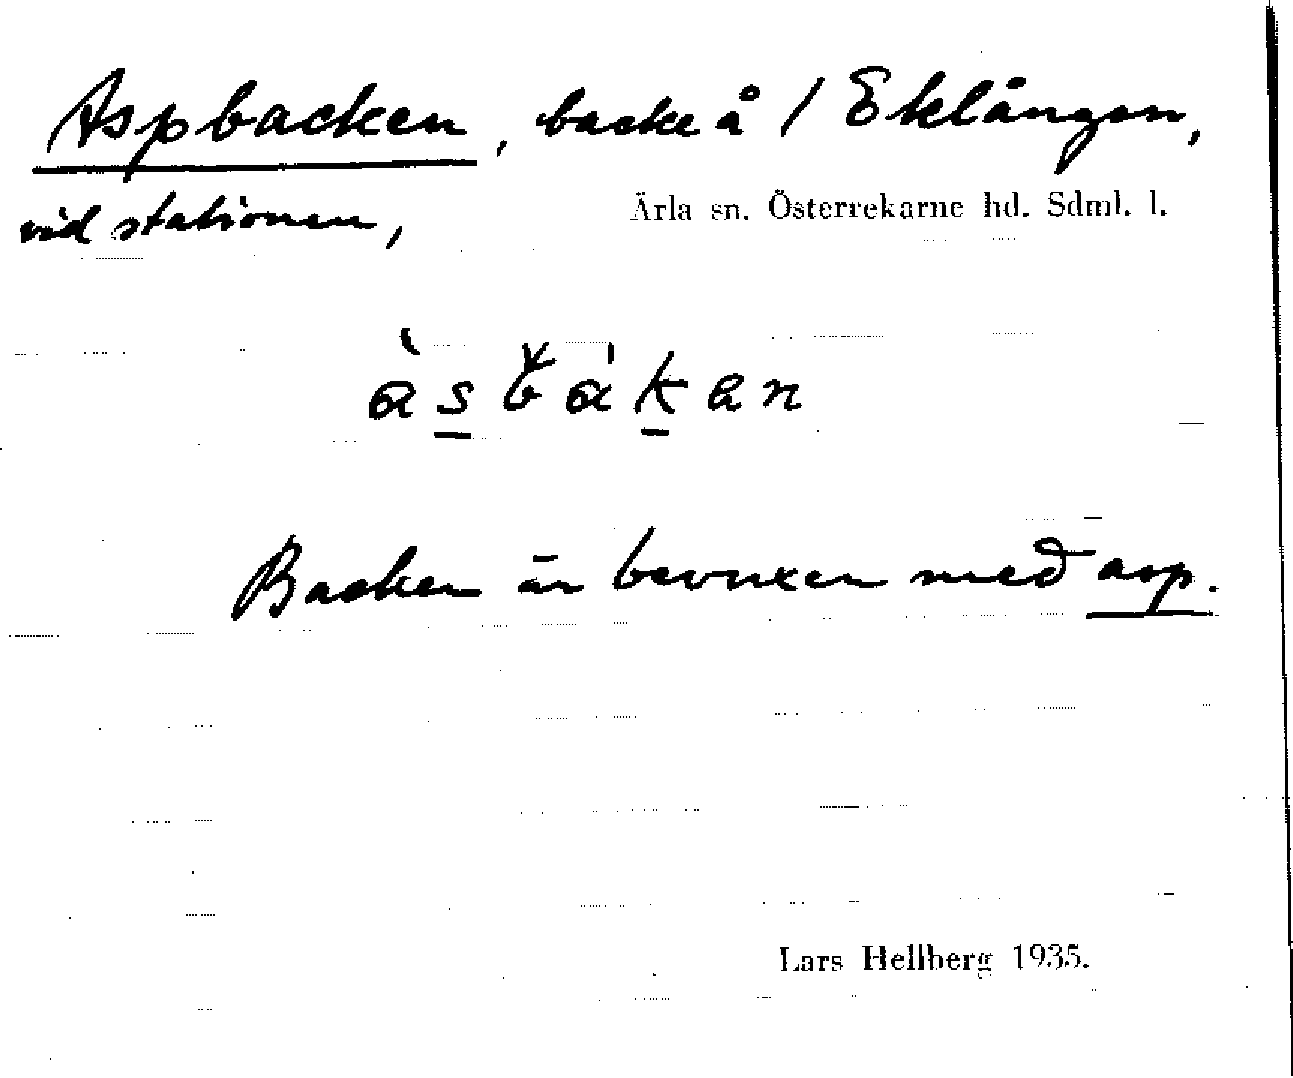 Aspbacken, backe å / Eklången,
vid stationen,
Ärla sn. Österrekarne hd. Sdml. l.
àsbákan
Backen är bevuxen med asp.
Lars Hellberg 1935.